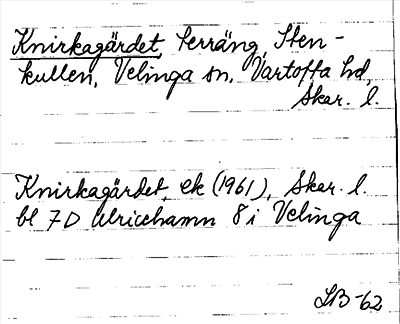 Knirkagärdet, terräng, Sten-
kullen, Velinga sn, Vartofta hd,
Skar. l.
Knirkagärdet, ek (1961), Skar. l.
bl 7D Ulricehamn 8 i Velinga
SB-62